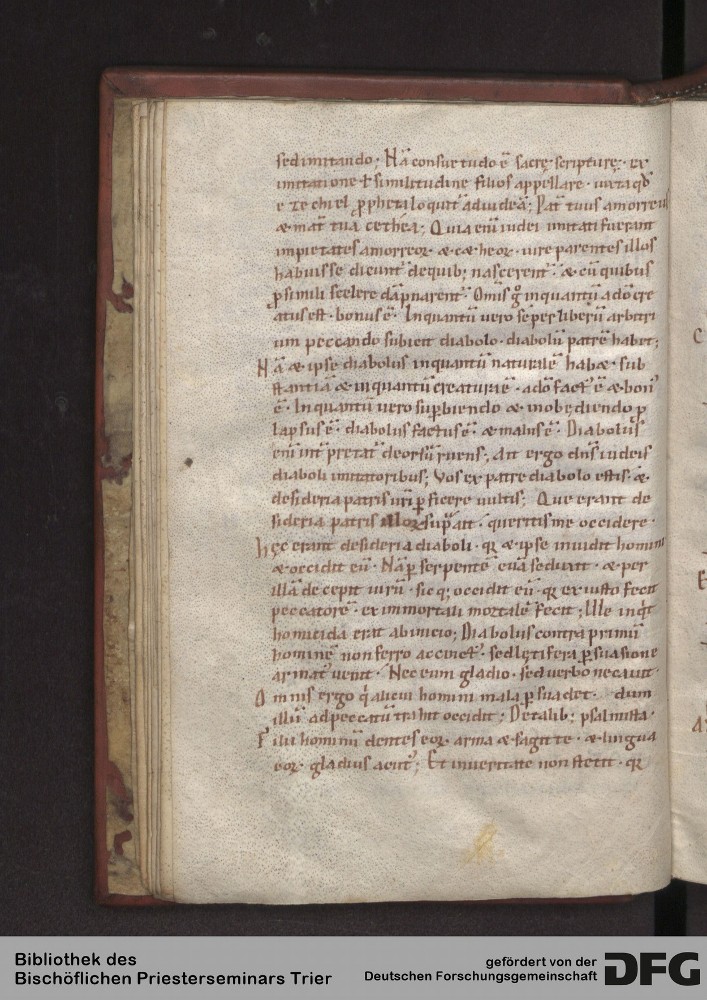 sed imitando · Nā consuetudo ē sacrę scripturę · ex
imitatione ł similitudine filios appellare · iuxta qđ
ezechiel ꝓpheta loquit᷑ ad iudeā; Pat᷑ tuus amorreus
& mat᷑ tua cethea; Quia eni iudei imitati fuerant
impietates amorreoꝝ & c&heoꝝ · iure parentes illos
habuisse dicunt᷑ de quib; nascerent᷑ · & cū quibus
ꝑ simili scelere dāpnarent᷑ Omis g° inquantū a dō cre
atus est · bonus ē · Inquantū uero seper liberū arbitri
um peccando subiecit diabolo · diabolū patrē habet;
Nā & ipse diabolus inquantū naturalē hab& · sub
stantiā & inquantū creatura ē · a dō fact᷒ ē & bon᷒
ē · Inquantū uero suꝑbiendo & inobędiendo ꝓ
lapsus ē · diabolus factus ē · & malus ē · Diabolus
eni int᷑pretat᷑ deorsū ruens; Ait ergo dn̄s iudeis
diaboli imitatoribus; Vos ex patre diabolo estis · &
desideria patris uri ꝑficere uultis; Que erant de
sideria patris illoꝝ supͣ ait · queritis me occidere ·
hęc erant desideria diaboli · qꝛ & ipse inuidit homini
& occidit eū · Nā ꝑ serpentē euā seduxit · & per
illā decepit uirū · sicq; occidit eū · qꝛ ex iusto fecit
peccatorē · ex immortali mortalē fecit; Ille inqͥt
homicida erat ab inicio; Diabolus contra primū
hominē non ferro accinct᷒ · sed lętifera ꝑsuasione
armat᷒ uenit · Nec eum gladio · sed uerbo necauit ·
Omnis ergo qͥ alicui homini mala ꝑsuadet · dum
illū ad peccatū trahit occidit; De talib; psalmista ·
Filii hominū dentes eoꝝ · arma & sagitte · & lingua
eoꝝ · gladius acut᷒; Et in ueritate non stetit · qꝛ
Bibliothek des
Bischöflichen Priesterseminars Trier
gefördert von der
Deutschen Forschungsgemeinschaft
DFG